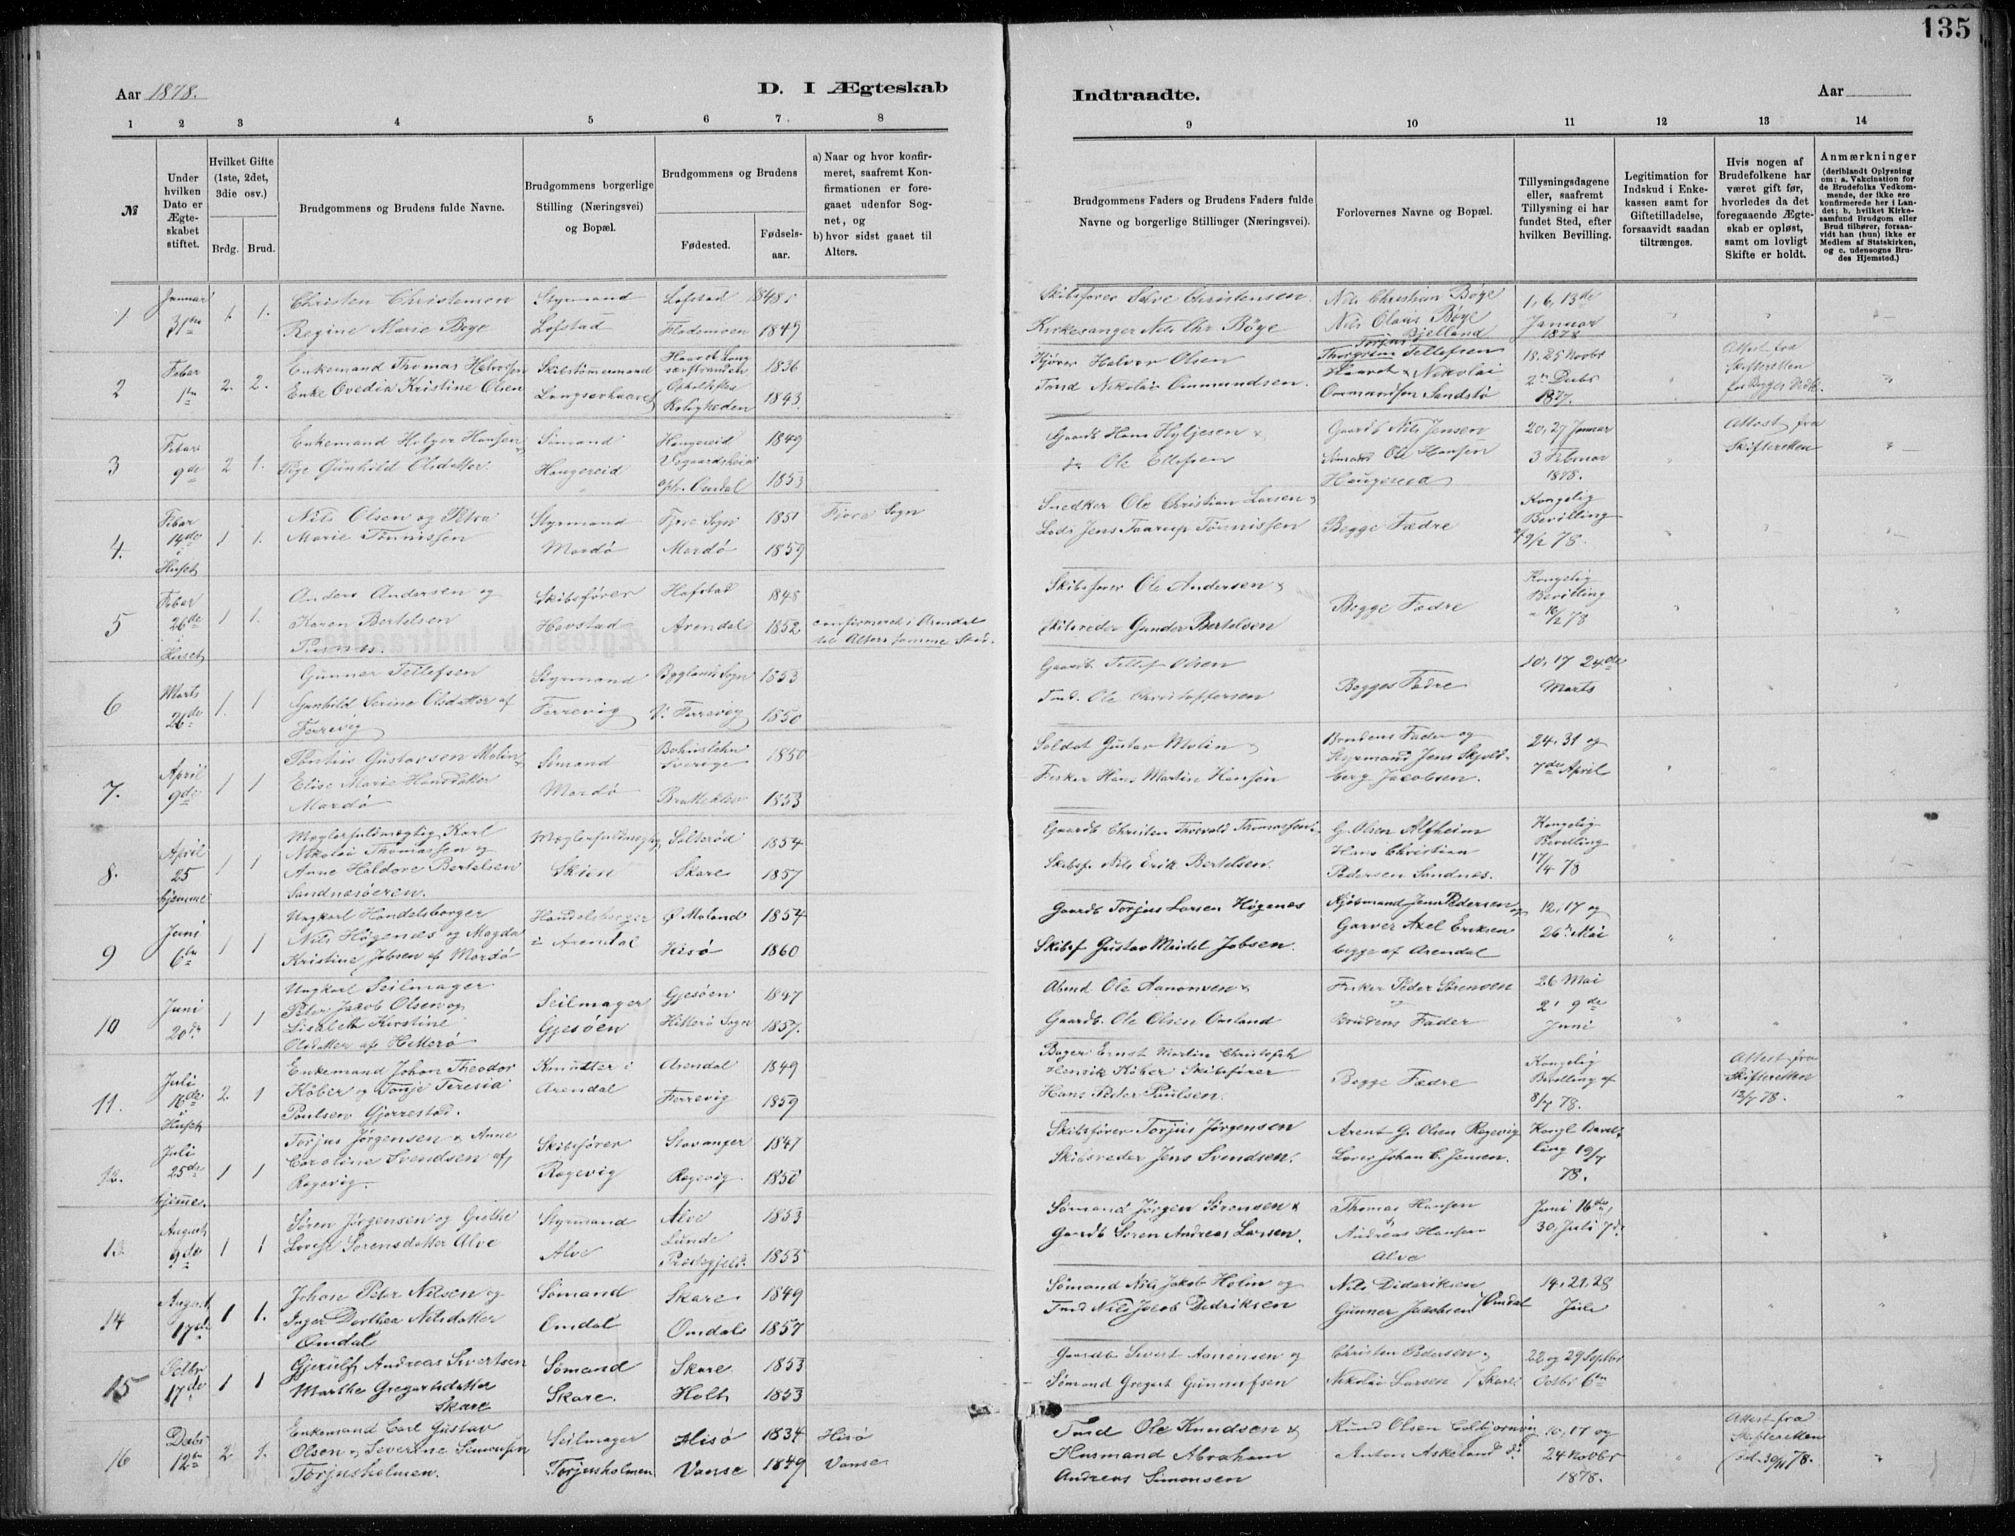 135
Aar 1878.
D. I Ægteskab
Indtraadte.
Aar
1 2 3 4 5 6 7. 8
9 10 11 12 13 14
№
Under hvilken Dato er Ægteskabet stiftet.
Hvilket Gifte (1ste, 2det, 3die osv.)
Brdg. Brud.
Brudgommens og Brudens fulde Navne.
Brudgommens borgerlige Stilling (Næringsvei) og Bopæl.
Brudgommens og Brudens
Fødested.
Fødsels-aar.
a) Naar og hvor konfirmeret, saafremt Konfirmationen er foregaaet udenfor Sognet, og
b) hvor sidst gaaet til Alters.
Brudgommens Faders og Brudens Faders fulde Navne og borgerlige Stillinger (Næringsvei).
Forlovernes Navne og Bopæl.
Tillysningsdagene eller, saafremt Tillysning ei har fundet Sted, efter hvilken Bevilling.
Legitimation for Indskud i Enkekassen samt for Giftetilladelse, forsaavidt saadan tiltrænges.
Hvis nogen af Brudefolkene har været gift før, hvorledes da det foregaaende Ægteskab er opløst, samt om lovligt Skifte er holdt.
Anmærkninger (deriblandt Oplysning om: a. Vakcination for de Brudefolks Vedkommende, der ikke ere konfirmerede her i Landet; b. hvilket Kirkesamfund Brudgom eller Brud tilhører, forsaavidt han (hun) ikke er Medlem af Statskirken, og c. udensogns Brudes Hjemsted.)
1 Januar 31te 1. 1. Christen Christensen Styrmand Løfstad 1848. Skibsfører Salve Christensen Nils Christian Bøye 1, 6, 13de
Regine Marie Boye Løfstad Flademoen 1849 Kirkesanger Nils Chr Bøye Nils Olaus Bøye Bjelland Januar 1878
2 Febar 1te 2. 2. Enkemand Thomas Halvorsen Skibstømmermand 1836 Halvor Olsen Tellefsen 18. 25 Novbr Attest fra
Enke Ovedia Kristine Olsen 1843. Tind Nikolai Ommundsen Haavet & Nikolai Ommundsen Sandstø 2den Decbr 1877. Skifteretten
3 Febar 9de 2 1. Enkemand Holger Hansen Sømand Haugereid 1849 Gaardb Hans Gaardb Nils Jensen 20, 27 Januar Attest fra
Gunhild Olsdatter Haugereid Omdal 1853 do Ole Ellefsen Sømand Ole Hansen Haugereid 3 Februar 1878. Skifteretten
4. Febar 14de i Huset 1 1. Nils Olsen og Petra Styrmand Fjære Sogn 1851 Fjære Sogn Snedker Ole Christian Larsen Kongelig
Marie Tønnissen Mærdø Mærdø 1859 Lods Jens Taarup Tønnissen Begge Fædre Bevilling 9/2 78.
5 Febar 26de i Huset 1 1. Anders Andersen og Skibsfører Hafstad 1848 Skibsfører Ole Andersen & Kongelig
Karen Bertelsen Havstad Arendal 1852 confirmeret i Arendal Skibsreder Gunder Bertelsen Begge Fædre Bevilling
til Alters samme Sted. 16/2 78
6 Marts 26de 1. 1 Gunner Tellefsen Styrmand Bygland Sogn 1853 Gaardb. Tellef Olsen 10, 17 24de
Gunhild Serine Olsdatter af Færrevig Færrevig V. Færrevig 1850 Ind. Ole Christoffersen Begges Fædre Marts
7. April 9de 1 1 Pontus Gustavsen Molin Sømand Bohuslehn Sverige 1850 Soldat Gustav Molin Brudens Fader og 24, 31 og
Elise Marie Hansdatter Mærdø Mærdø Bratteklev 1853 Fisker Hans Martin Hansen Styrmand Jens Skjoldberg Jacobsen. 7de April
8. April 25 hjemme 1 1 Mæglerfuldmægtig Karl Mæglerfuldmægtig Salterød 1854 Gaardb Christen Thorvald Thomassen G. Olsen Alfheim Kongelig
Nikolai Thomassen og Anne Haldore Bertelsen Sandnesøeren. Skien Skare 1857 Skibsf. Nils Erik Bertelsen. Hans Christian Pedersen Sandnes. Bevilling 17/4 78
9 Juni 6te 1 1 Ungkarl Handelsborger Handelsborger Ø Moland 1854 Gaardb Torjus Larsen Høgenæs Kjøbmand Jens Pedersen og 12, 17 og
Nils Høgenæs og Magda Kristine Jobsen af Mærdø i Arendal Hisø 1860 Skibsf Gustav Meidel Jobsen. Garver Axel Eriksen begge af Arendal 26de Mai
10 Juni 20de 1 1 Ungkarl Seilmager Seilmager Gjesøen 1847 Abmd Ole Aanonsen & Fisker Peder Sørensen 26 Mai
Peder Jacob Olsen og Lisabeth Kirstine Olsdatter af Hitterø Gjesøen Hitterø Sogn 1857. Gaardb. Ole Olsen Brudens Fader 2, 9de Juni
11. Juli 16de i Huset 2 1 Enkemand Johan Theodor Arendal 1849 Bager Ernst Martin Christoph Henrik Köber Skibsfører Kongelig Attest fra
Köber & Tonje Teresia Paulsen Gjærrestad. Arendal Færrevig 1859 Hans Peder Paulsen. Begge Fædre Bevilling af 8/7 78. Skifteretten 12/7 78.
12. Juli 25de hjemme. 1 1 Torjus Jørgensen & Anne Skibsfører Stavanger 1847 Skibsfører Torjus Jørgensen Arent G. Olsen Rægevig Kongl Bevil-
Caroline Svendsen af Rægevig. Rægevig Rægevig 1850 Skibsreder Jens Svendsen. Johan C. Jensen. ling 19/7 78.
13 August 9de 1 1 Søren Jørgensen og Grethe Styrmand Alve 1853 Sømand Jørgen Sørensen & Thomas Hansen & Juni 16de,
Lovise Sørensdatter Alve Alve Lunde Præstegjeld. 1855 Gaardb Søren Andreas Larsen. Andreas Hansen Alve 30, Juli 7de
14 August 17de 1 1. Johan Peter Nilsen og Sømand Skare 1849 Sømand Nils Jakob Holm og Nils Dideriksen 14, 21, 28
Inger Dorthea Nilsdatter Omdal Omdal Omdal 1857 Ind Nils Jacob Didriksen Gunner Jacobsen / Omdal Juli
15 17de 1 1 Gjerulf Andreas Sivertsen Sømand Skare 1853 Gaardb Sivert Aanonsen og Christen Pedersen & 22 og 29 Septbr
Marthe Gregertsdatter Skare Skare. Holt 1853 Sømand Gregert Gunnufsen Nikolai Larsen / Skare Octbr 6te
16 Decbr 12te 2 1. Enkemand Carl Gustav Seilmager Hisø 1834 Hisø Ind Ole Knudsen & Knud Olsen Colbjørnsvig 10, 17 og Attest fra
Olsen & Severine Simonsen Torjusholmen. Torjusholmen Vanse 1849 Vanse Husmand Abraham Andreas Simonsen Anton Askeland do 24 Novbr 1878. Skifteretten dat. 30/11 78.